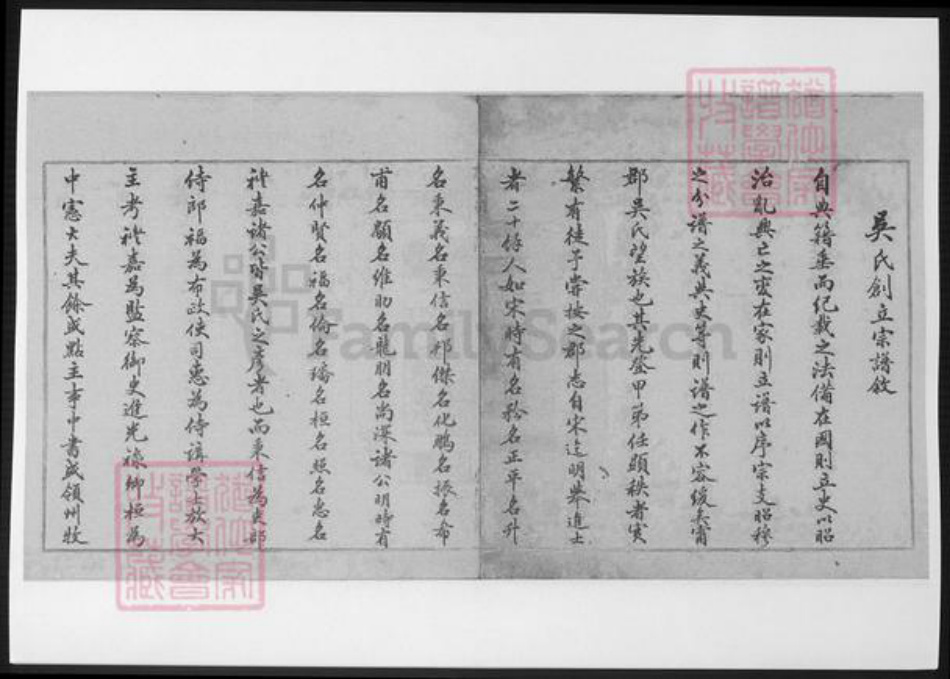 吳氏創立宗譜敘
自典籍垂而紀載之法備在國則立史以昭
治亂興亡之東在家則立譜以序宗支昭穆
之分譜之義與史等則譜之作不容緩矣甯
郡吳氏望族也其先登甲第任顯秩者寔
繁有徒予嘗按之郡志自宋迄明舉進士
者二十餘人如宋時有名矜名正平名升
名秉義名秉信名邦傑名化鵬名振名希
甫名顧名維助名龍朋名尚深諸公明時有
名仲賢名福名倫名璠名桓名照名惠名
禮嘉諸公皆吳氏之彥者也而秉信為吏部
侍郎福為布政使司惠為侍講學士放大
主考禮嘉為監察御史進光祿卿桓為
中憲大夫其餘或點主事中書或領州牧
FamilySearch
譜學會
收藏